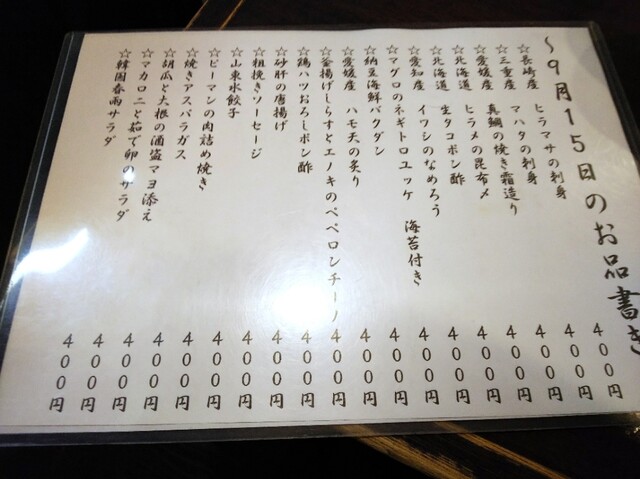 ～9月15日のお品書き
☆長崎産 ヒラマサの刺身 400円
☆三重産 マハタの刺身 400円
☆愛媛産 真鯛の焼き霜造り 400円
☆北海道 ヒラメの昆布〆 400円
☆北海道 生タコポン酢 400円
☆愛知産 イワシのなめろう 400円
☆マグロのネギトロユッケ 海苔付き 400円
☆納豆海鮮バクダン 400円
☆愛媛産 ハモ天の炙り 400円
☆釜揚げしらすとエノキのペペロンチーノ 400円
☆鶏ハツおろしポン酢 400円
☆砂肝の唐揚げ 400円
☆粗挽きソーセージ 400円
☆山東水餃子 400円
☆ピーマンの肉詰め焼き 400円
☆焼きアスパラガス 400円
☆胡瓜と大根の酒盗マヨ添え 400円
☆マカロニと茹で卵のサラダ 400円
☆韓国春雨サラダ 400円